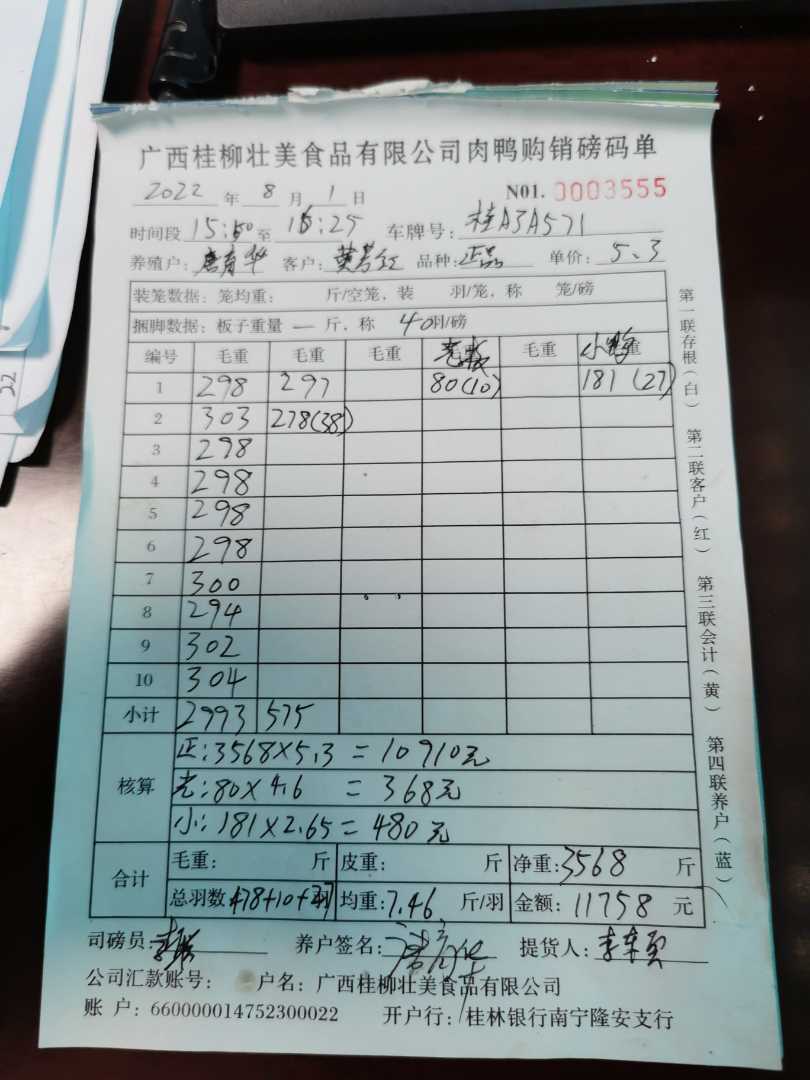 广西桂柳壮美食品有限公司肉鸭购销磅码单
2022 年 8 月 1 日 N01. 0003555
时间段 15:50 至 16:25 车牌号: 桂A3A571
养殖户: 唐育华 客户: 黄芳红 品种: 正品 单价: 5.3
装笼数据: 笼均重: 斤/空笼, 装 羽/笼, 称 笼/磅
捆脚数据: 板子重量 — 斤, 称 40羽/磅
编号 毛重 毛重 毛重 毛重 小鸭
1 298 297 80(10) 181 (27)
2 303 278(38)
3 298
4 298
5 298
6 298
7 300
8 294
9 302
10 304
小计 2993 575
核算
正:3568×5.3 = 10910元
光:80×4.6 = 368元
小:181×2.65 = 480元
合计
毛重: 斤 皮重: 斤 净重:3568 斤
总羽数 478+10+27 羽 均重:7.46 斤/羽 金额: 11758 元
司磅员: 养户签名: 提货人:
公司汇款账号: 户名: 广西桂柳壮美食品有限公司
账 户: 660000014752300022 开户行: 桂林银行南宁隆安支行
第一联存根(白) 第二联客户(红) 第三联会计(黄) 第四联养户(蓝)